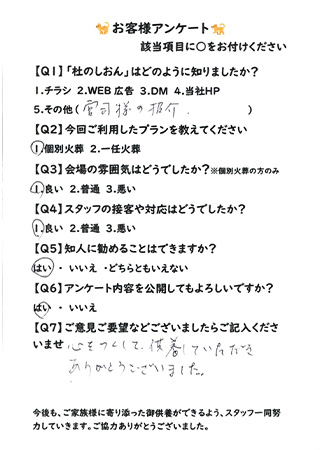 お客様アンケート
該当項目に○をお付けください
【Q1】「杜のしおん」はどのように知りましたか？
1.チラシ 2.WEB広告 3.DM 4.当社HP
5.その他( 宮司様の紹介. )
【Q2】今回ご利用したプランを教えてください
1.個別火葬 2.一任火葬
【Q3】会場の雰囲気はどうでしたか？※個別火葬の方のみ
1.良い 2.普通 3.悪い
【Q4】スタッフの接客や対応はどうでしたか？
1.良い 2.普通 3.悪い
【Q5】知人に勧めることはできますか？
はい ・ いいえ ・どちらともいえない
【Q6】アンケート内容を公開してもよろしいですか？
はい ・ いいえ
【Q7】ご意見ご要望などございましたらご記入くださ
いませ 心をつくして、供養していただき
ありがとうございました。
今後も、ご家族様に寄り添った御供養ができるよう、スタッフ一同努
力していきます。ご協力ありがとうございました。